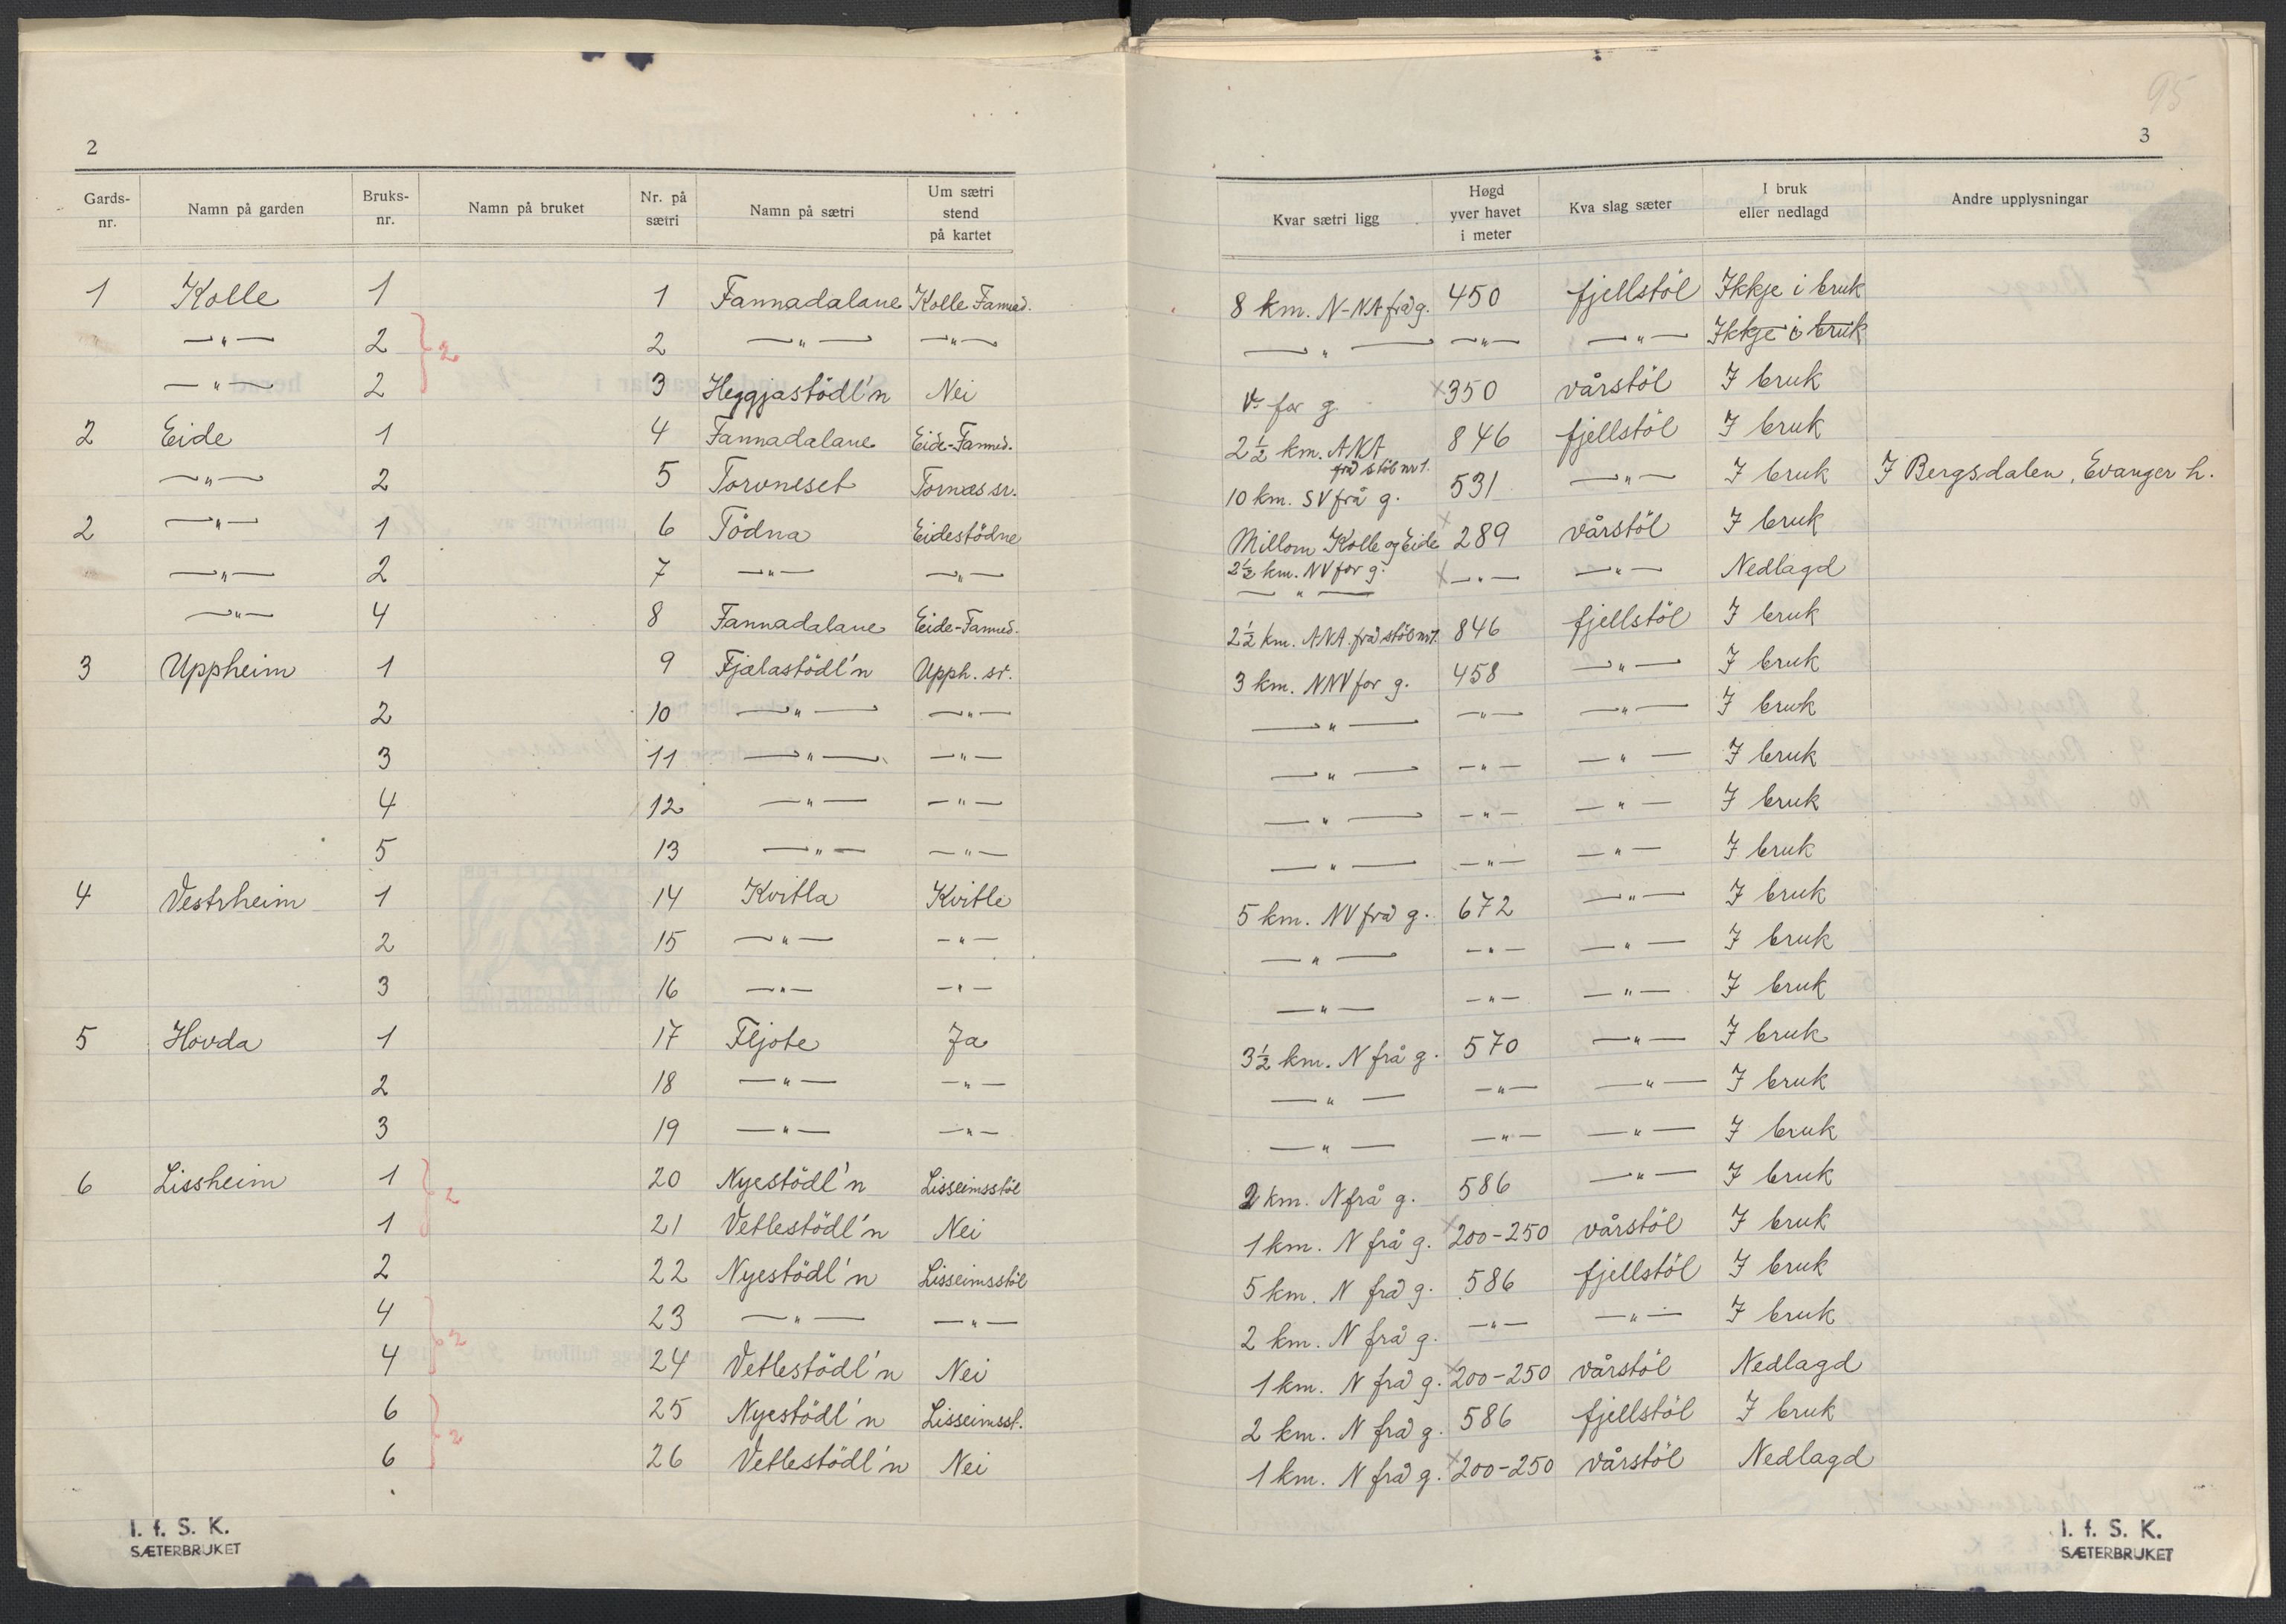 2
Gards-nr. | Namn på garden | Bruks-nr. | Namn på bruket | Nr. på sætri | Namn på sætri | Um sætri stend på kartet
1 | Kolle | 1 | | 1 | Fannadalane | Kolle Fannad.
—"— | 2 | | 2 | —"— | —"—
—"— | 2 | | 3 | Heggjastödl'n | Nei
2 | Eide | 1 | | 4 | Fannadalane | Eide-Fanned.
—"— | 2 | | 5 | Torvneset | Tornes sr.
2 | —"— | 1 | | 6 | Tödna | Eidestödne
—"— | 2 | | 7 | —"— | —"—
—"— | 4 | | 8 | Fannadalane | Eide-Fanned.
3 | Uppheim | 1 | | 9 | Fjælastödl'n | Upph. sr.
2 | | 10 | —"— | —"—
3 | | 11 | —"— | —"—
4 | | 12 | —"— | —"—
5 | | 13 | —"— | —"—
4 | Vestrheim | 1 | | 14 | Kvitla | Kvitle
2 | | 15 | —"— | —"—
3 | | 16 | —"— | —"—
5 | Hovda | 1 | | 17 | Fljote | Ja
2 | | 18 | —"— | —"—
3 | | 19 | —"— | —"—
6 | Lissheim | 1 | | 20 | Nyestödl'n | Lisseimsstöl
1 | | 21 | Vetlestödl'n | Nei
2 | | 22 | Nyestödl'n | Lisseimsstöl
4 | | 23 | —"— | —"—
4 | | 24 | Vetlestödl'n | Nei
6 | | 25 | Nyestödl'n | Lisseimsst.
6 | | 26 | Vetlestödl'n | Nei
I. f. S. K.
SÆTERBRUKET
95
3
Kvar sætri ligg | Høgd yver havet i meter | Kva slag sæter | I bruk eller nedlagd | Andre upplysningar
8 km. N-NA frå g. | 450 | fjellstöl | Ikkje i bruk
—"— | —"— | —"— | Ikkje i bruk
V. for g. | x350 | vårstöl | I bruk
2½ km. ANA frå stöl nr 1. | 846 | fjellstöl | I bruk
10 km. SV frå g. | 531 | —"— | I bruk | I Bergsdalen, Evanger h.
Millom Kolle og Eide 2½ km. NV for g. | x 289 | vårstöl | I bruk
—"— | x —"— | —"— | Nedlagd
2½ km. ANA. frå stöl nr 1. | 846 | fjellstöl | I bruk
3 km. NNV for g. | 458 | —"— | I bruk
—"— | —"— | —"— | I bruk
—"— | —"— | —"— | I bruk
—"— | —"— | —"— | I bruk
—"— | —"— | —"— | I bruk
5 km. NV frå g. | 672 | —"— | I bruk
—"— | —"— | —"— | I bruk
—"— | —"— | —"— | I bruk
3½ km. N frå g. | 570 | —"— | I bruk
—"— | —"— | —"— | I bruk
—"— | —"— | —"— | I bruk
2 km. N frå g. | 586 | —"— | I bruk
1 km. N frå g. | x200-250 | vårstöl | I bruk
5 km. N frå g. | 586 | fjellstöl | I bruk
2 km. N frå g. | —"— | —"— | I bruk
1 km. N frå g. | x200-250 | vårstöl | Nedlagd
2 km. N frå g. | 586 | fjellstöl | I bruk
1 km. N frå g. | x200-250 | vårstöl | Nedlagd
I. f. S. K.
SÆTERBRUKET